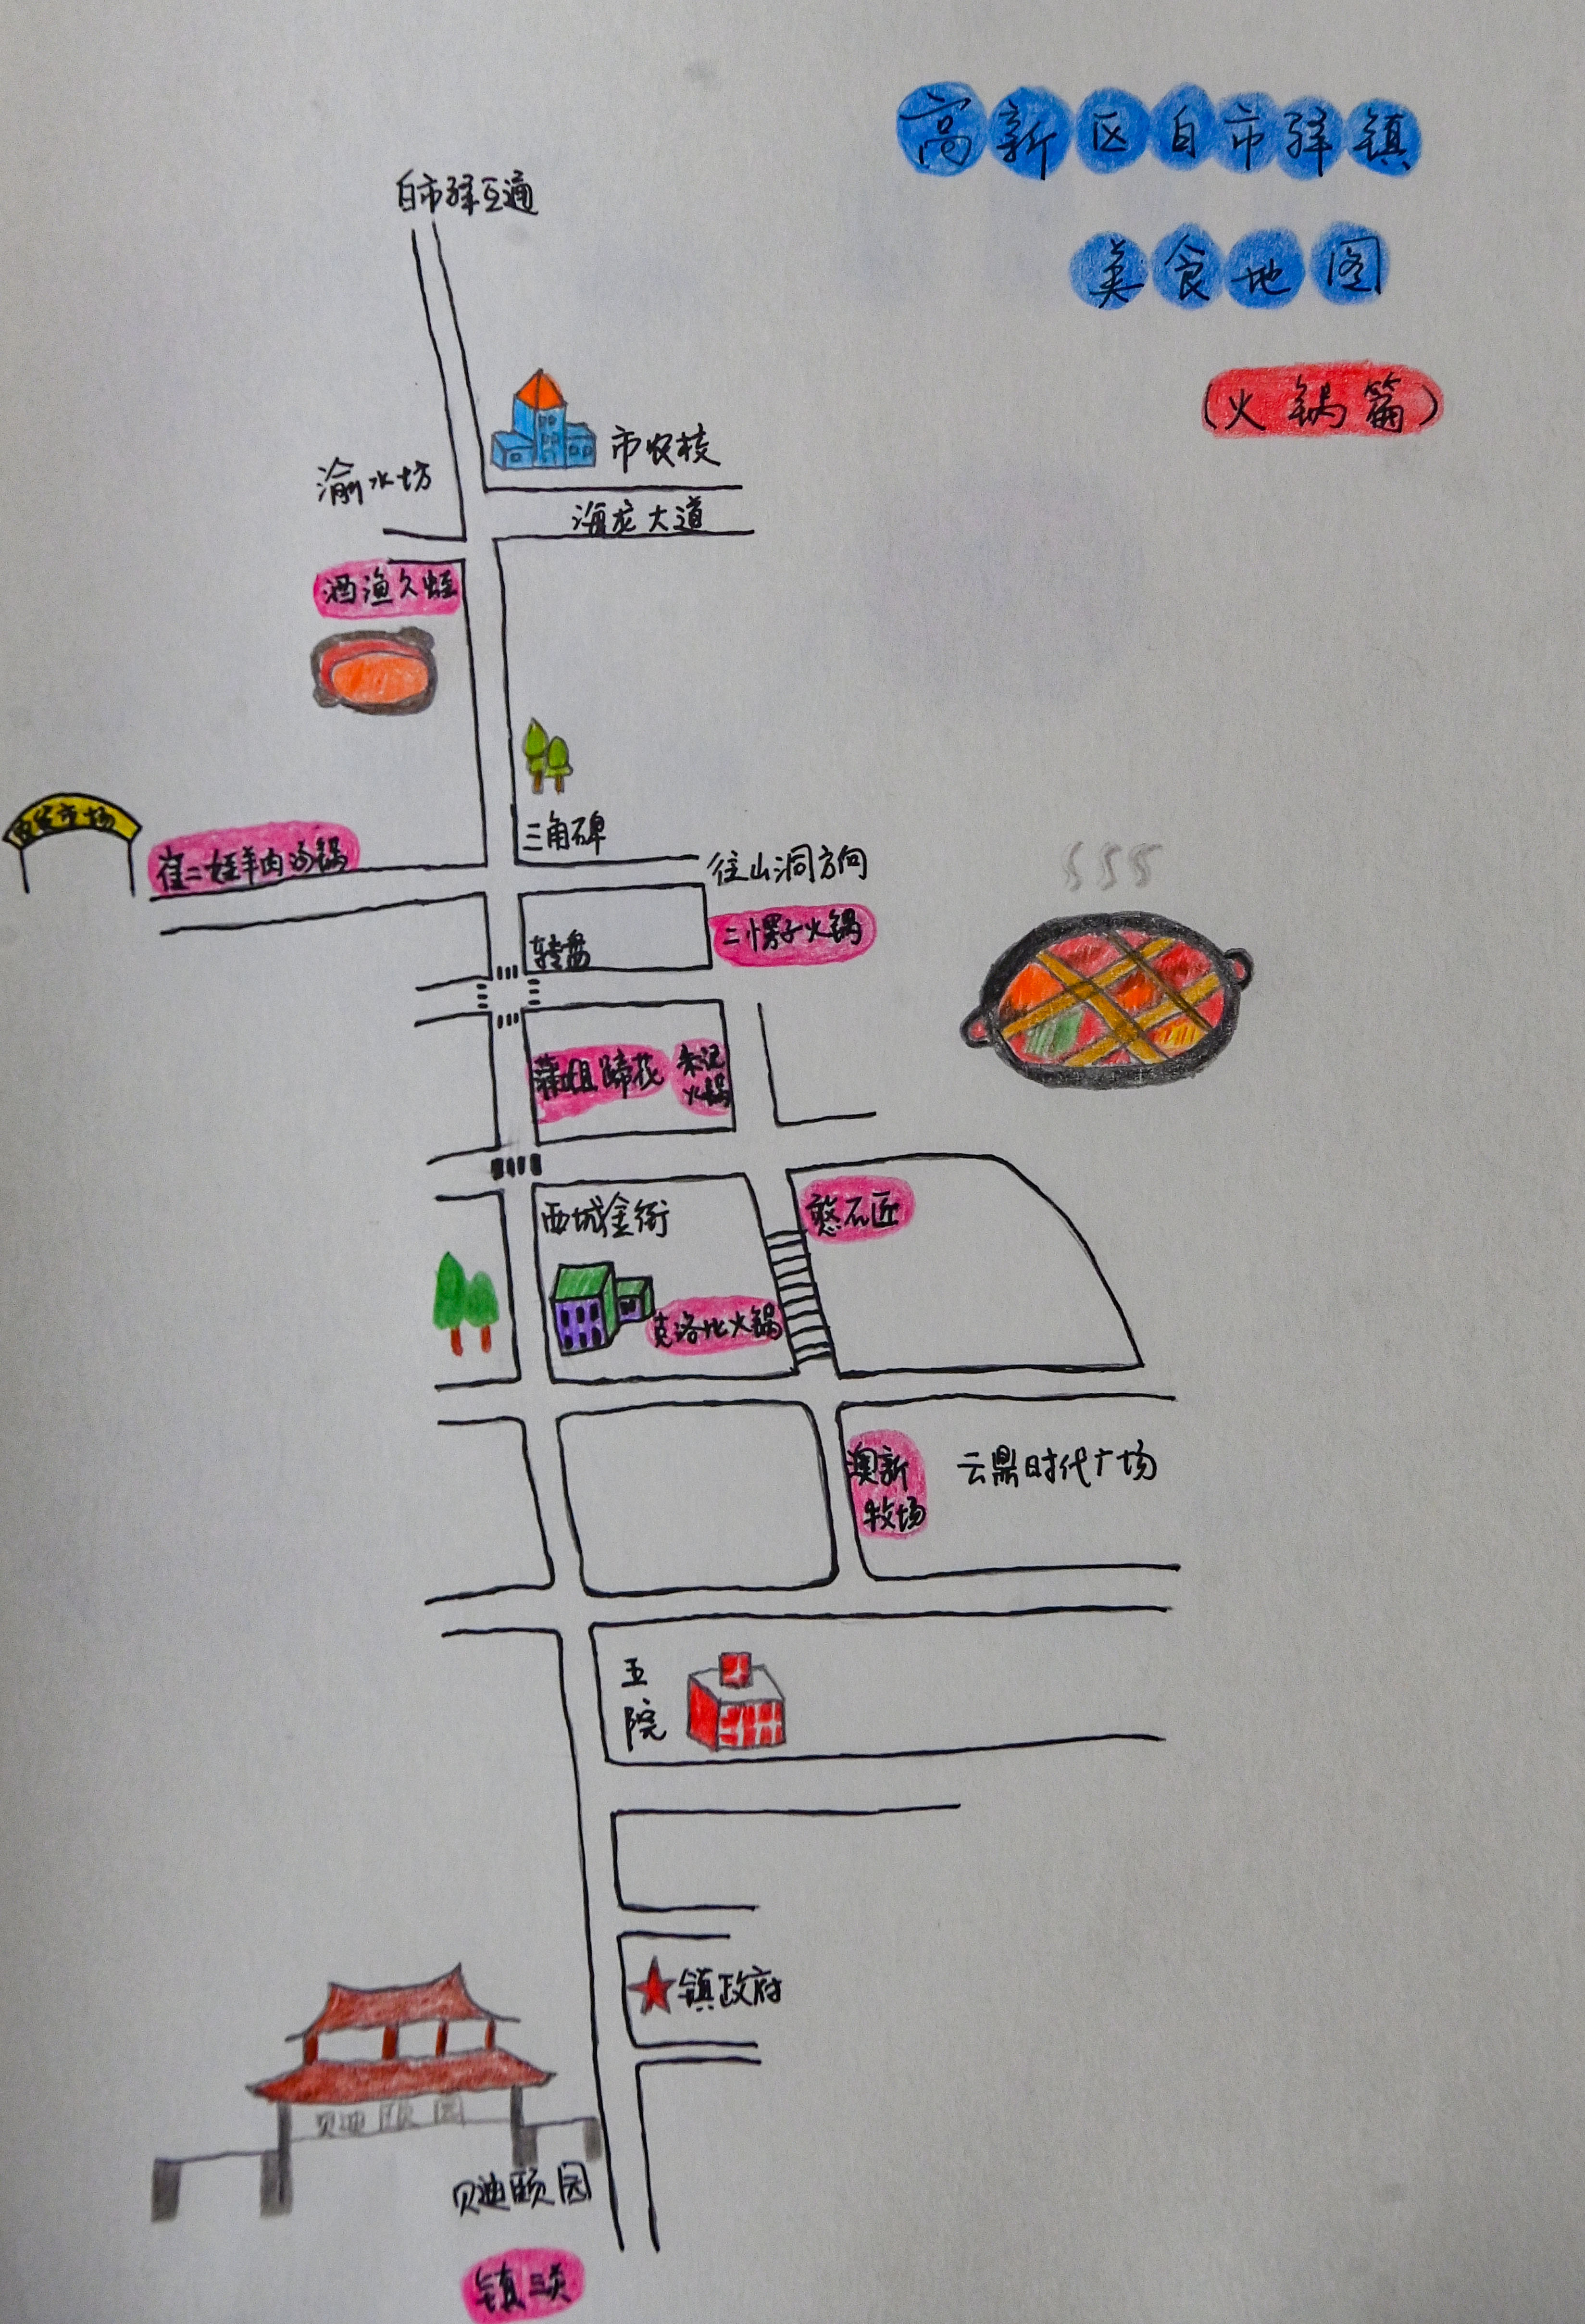 高新区白市驿镇
美食地图
(火锅篇)
白市驿互通
市农校
渝水坊
海龙大道
酒渔久蛙
三角碑
崔二娃羊肉汤锅
往山洞方向
二愣子火锅
转盘
蒲姐蹄花
朱记
火锅
西城金街
憨石匠
克洛比火锅
澳新
牧场
云鼎时代广场
五
院
镇政府
贝迪颐园
贝迪颐园
镇三关